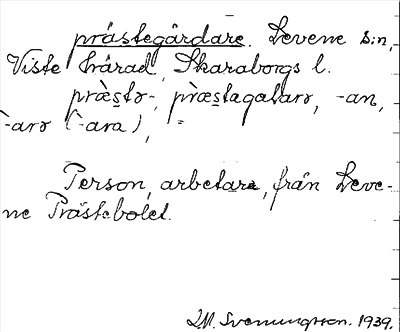 prästegårdare. Levene s:n,
Viste härad, Skaraborgs l.
præ̀stə-, præ̀stagaları, -an,
`-arə (`-ara), =
Person, arbetare, från Leve-
ne Prästebolet.
Svenungsson. 1939.